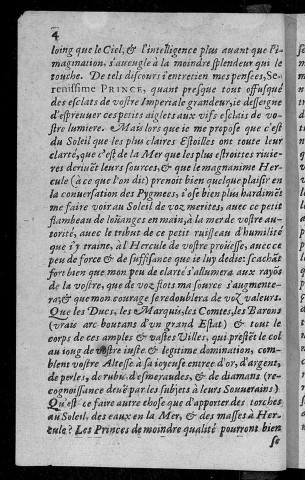 4
loing que le Ciel, & l'intelligence plus auant que l'i-
magination, s'aueugle à la moindre splendeur qui le
touche. De tels discours i'entretien mes pensees, Se-
renissime PRINCE, quant presque tout offusqué
des esclats de vostre Imperiale grandeur, ie desseigne
d'espreuuer ces petits aiglets aux vifs esclais de vo-
stre lumiere. Mais lors que ie me propose que c'est
du Soleil que les plus claires Estoilles ont toute leur
clarté, que c'est de la Mer que les plus estroittes riuie-
res deriuẽt leurs sources, & que le magnanime Her-
cule (à ce que l'on dit) prenoit bien quelque plaisir en
la conuersation des Pygmees, i'ose bien plus hardimẽt
me faire voir au Soleil de voz merites, auec ce petit
flambeau de loüanges en main, à la mer de vostre au-
torité, auec le tribut de ce petit ruisseau d'humilité
que i'y traine, à l'Hercule de vostre proüesse, auec ce
peu de force & de suffisance que ie luy dedie: scachãt
fort bien que mon peu de clarté s'allumera aux rayõs
de la vostre, que de voz flots ma source s'augmente-
ra, & que mon courage se redoublera de voz valeurs.
Que les Ducs, les Marquis, les Comtes, les Barons
(vrais arc boutans d'un grand Estat) & tout le
corps de ces amples & vastes Villes, qui prestẽt le col
au ioug de vostre iuste & legitime domination, com-
blent vostre Altesse à sa ioyeuse entree d'or, d'argent,
de perles, de rubis, d'esmeraudes, & de diamans (re-
cognoissance deuë par les subiets à leurs Souuerains)
Qu'est ce faire autre chose que d'apporter des torches
au Soleil, des eaux en la Mer, & des masses à Her-
cule? Les Princes de moindre qualité pourront bien
se